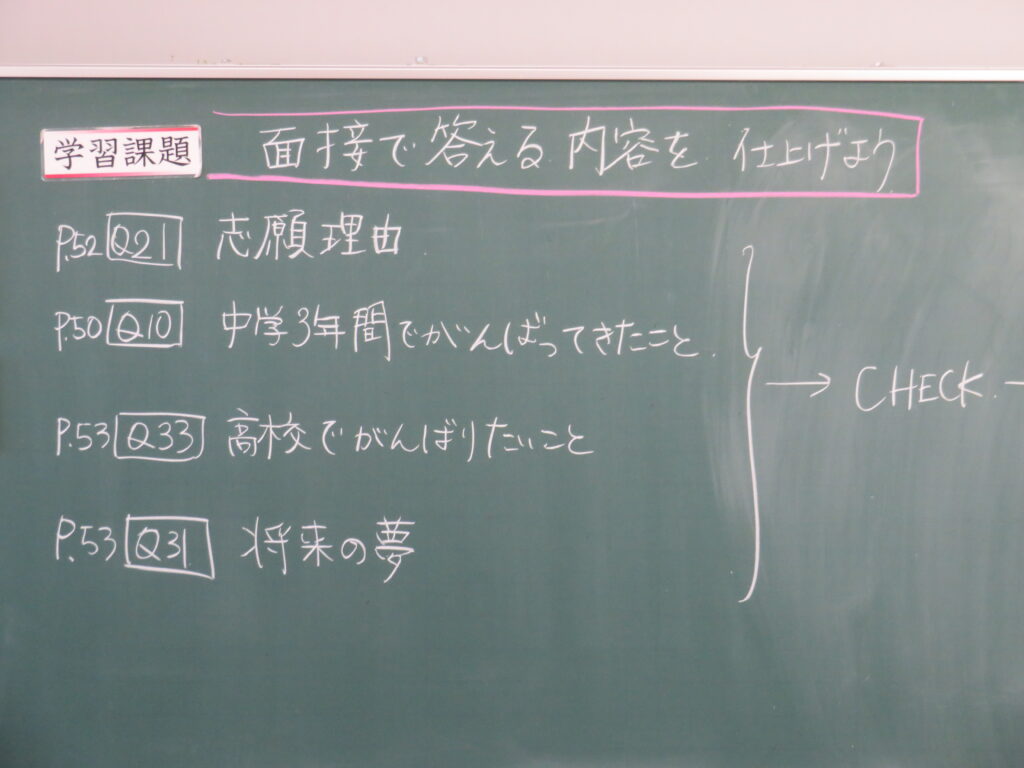 学習課題 面接で答える内容を仕上げよう
P.52 Q21 志願理由
P.50 Q10 中学3年間でがんばってきたこと.
P.53 Q33 高校でがんばりたいこと
P.53 Q31 将来の夢
→ CHECK.